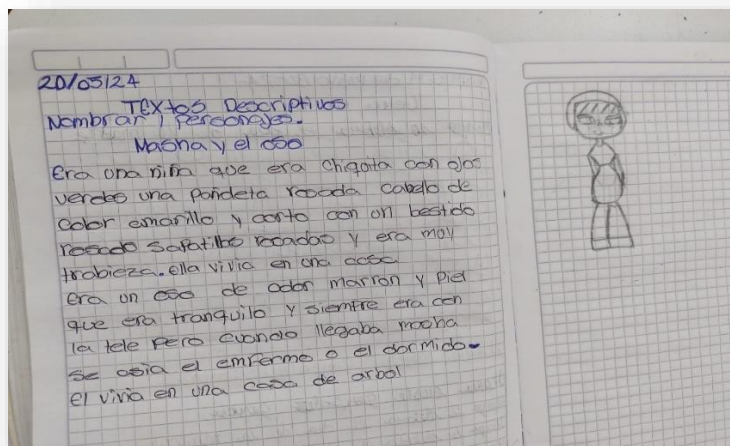 20/05/24
Textos Descriptivos
Nombrar 1 Personajes.
Masha y el oso
Era una niña que era chiquita con ojos
verdes una pañoleta rosada cabello de
color amarillo y corto con un bestido
rosado sapatillas rosadas y era muy
trabieza. ella vivia en una casa
era un oso de color marron y piel
que era tranquilo y siempre era con
la tele pero cuando llegaba masha
se asia el emfermo o el dormido-
el vivia en una casa de arbol